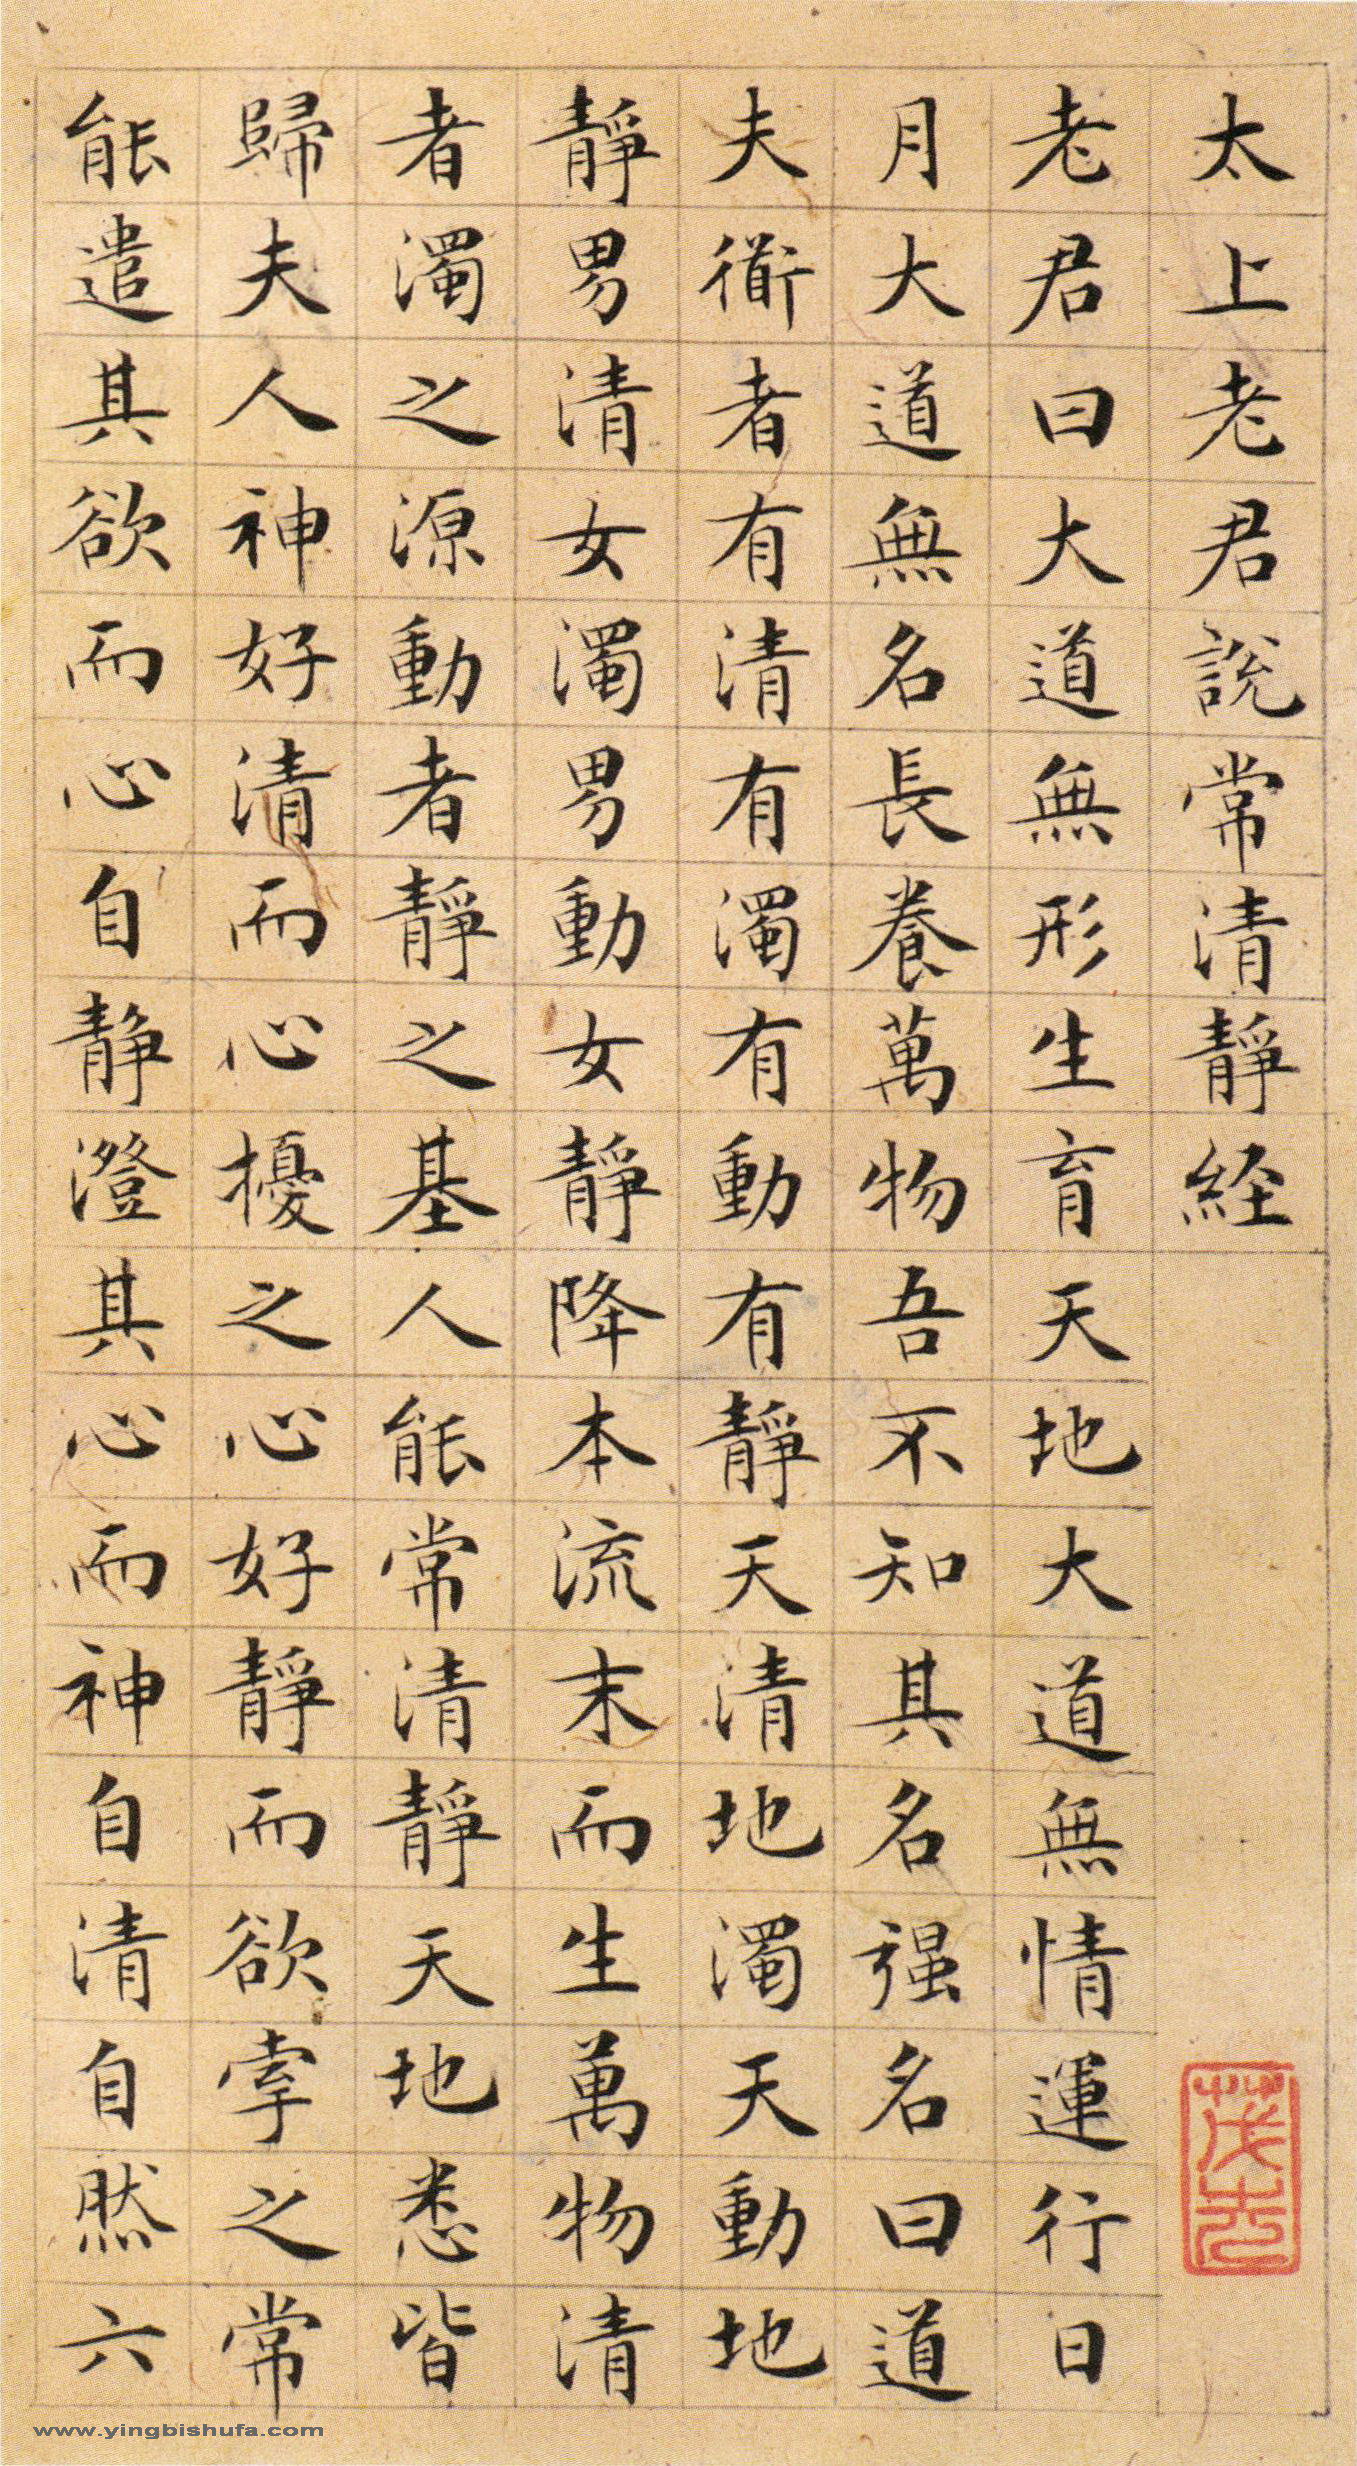 太上老君說常清靜経
老君曰大道無形生育天地大道無情運行日
月大道無名長養萬物吾不知其名强名曰道
夫衟者有清有濁有動有靜天清地濁天動地
靜男清女濁男動女靜降本流末而生萬物清
者濁之源動者靜之基人能常清靜天地悉皆
歸夫人神好清而心擾之心好靜而欲牽之常
能遣其欲而心自靜澄其心而神自清自然六
www.yingbishufa.com